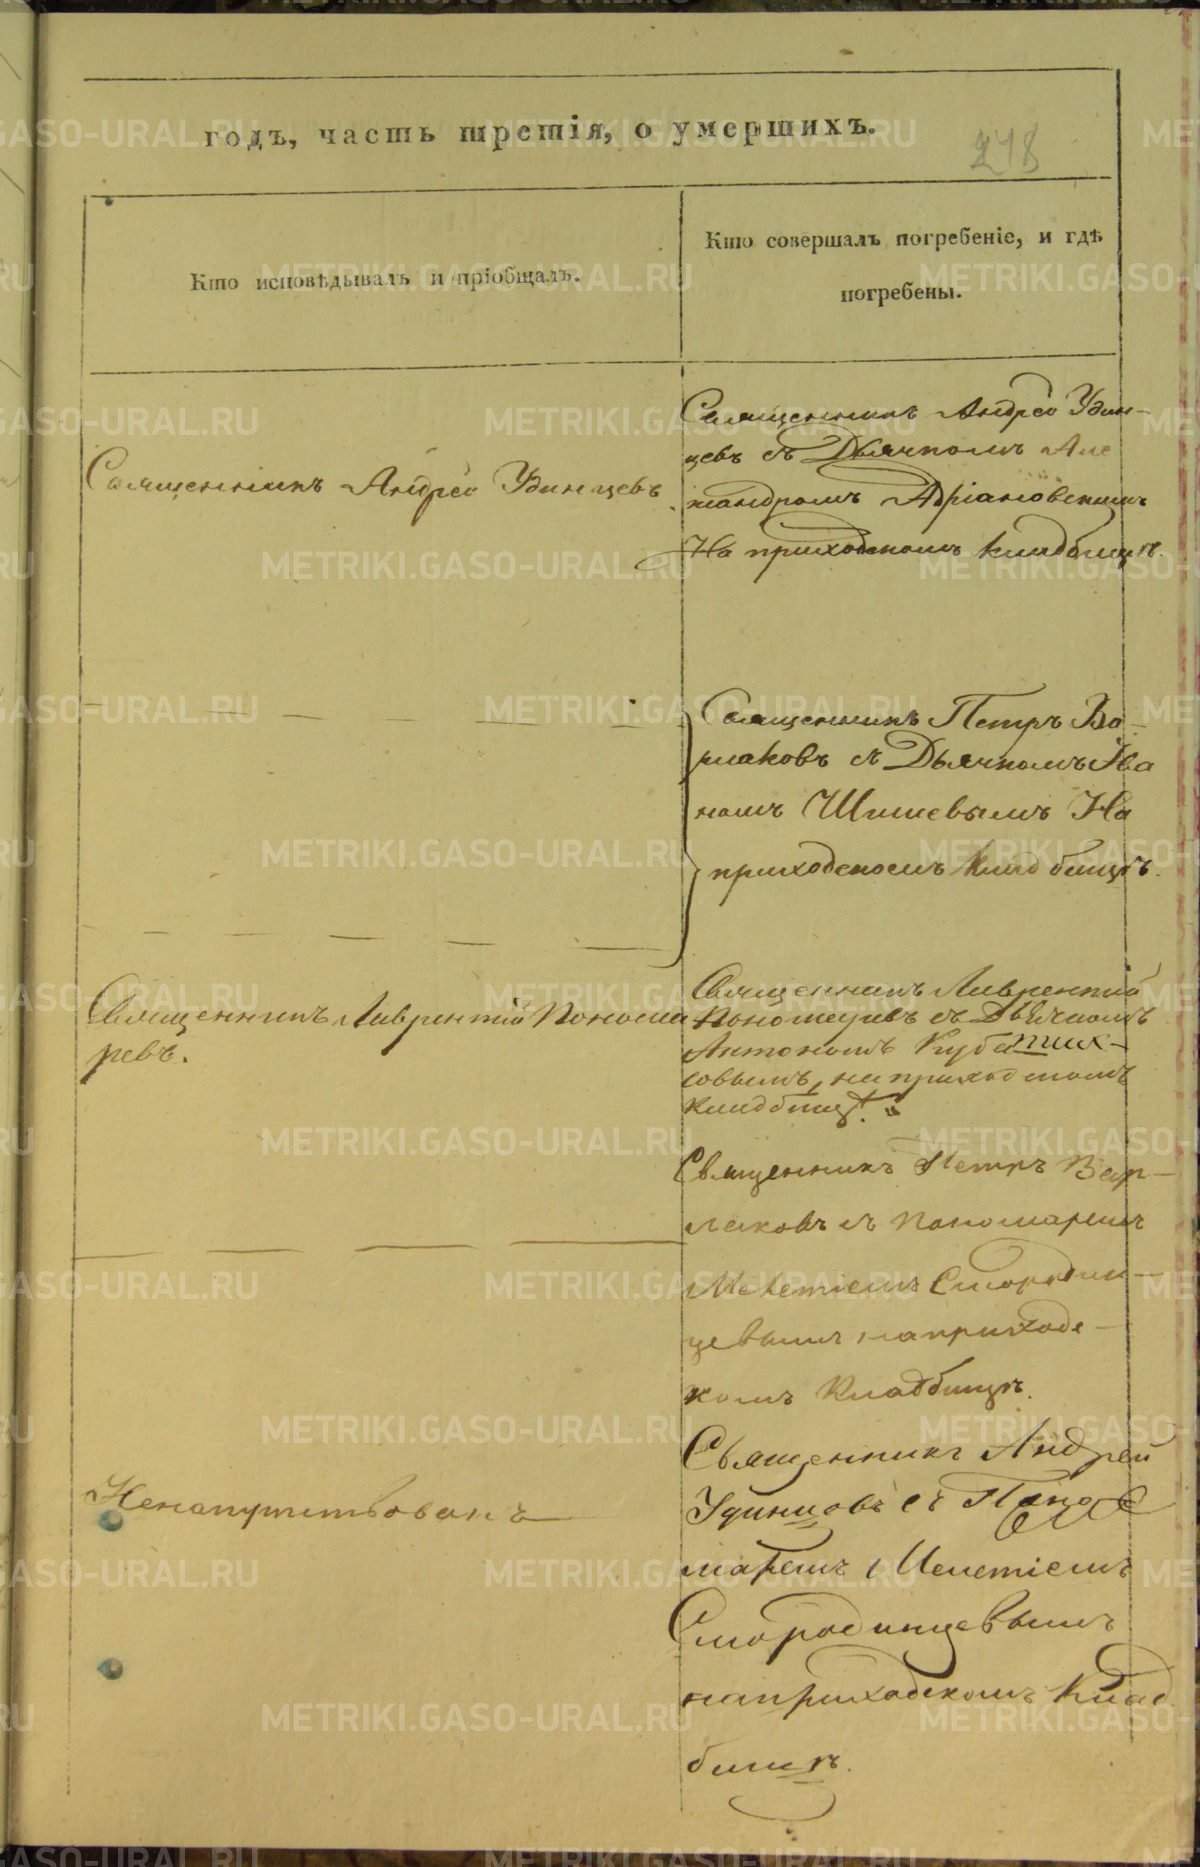 годъ, часть третія, о умершихъ.
248
Кто исповѣдывалъ и пріобщалъ.
Кто совершалъ погребеніе, и гдѣ
погребены.
Священникъ Андрей Удинцевъ
Священникъ Андрей Удин-
цевъ съ Дьячкомъ Але
ксандромъ Адріановскимъ
На приходскомъ кладбищѣ.
Священникъ Петръ Ва-
рлаковъ съ Дьячкомъ Ива
номъ Шишевымъ На
приходскомъ кладбищѣ.
Священникъ Лаврентій Пономa
ревъ.
Священникъ Лаврентій
Пономаревъ съ Дьячкомъ
Антономъ
совымъ, на приходскомъ
кладбищѣ.
Священникъ Петръ Вар-
лаковъ съ пономаремъ
Мелетіемъ Смородин-
цевымъ на приходс-
комъ кладбищѣ.
Ненапутствованъ
Священникъ Андрей
Удинцовъ съ Поно
маремъ Мелетіемъ
Смородинцевымъ
на приходскомъ Клад
бищѣ.
METRIKI.GASO-URAL.RU